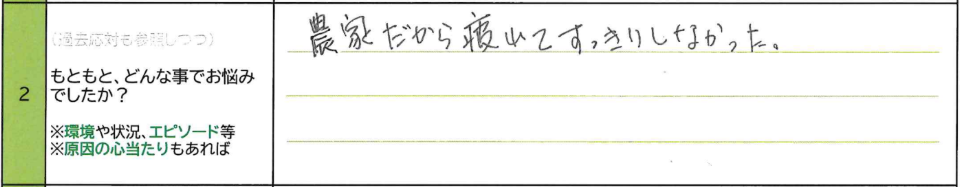 2
(過去応対も参照しつつ)
もともと、どんな事でお悩み
でしたか？
※環境や状況、エピソード等
※原因の心当たりもあれば
農家だから疲れてすっきりしなかった。